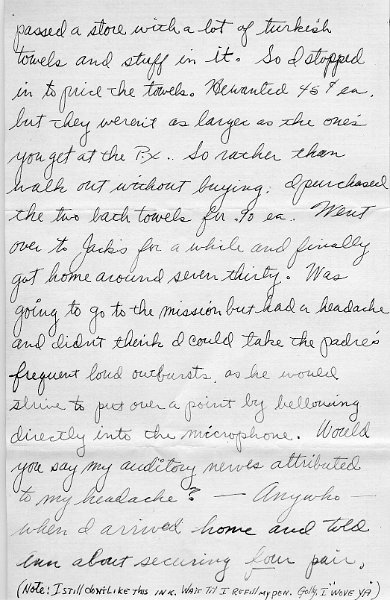 passed a store with a lot of turkish
towels and stuff in it. So I stopped
in to price the towels. He wanted 45¢ ea.
but they weren't as larger as the one's
you get at the Px.. So rather than
walk out without buying, I purchased
the two bath towels for .90 ea. Went
over to Jack's for a while and finally
got home around seven thirty. Was
going to go to the mission but had a headache
and didn't think I could take the padre's
frequent loud outbursts, as he would
strive to put over a point by bellowing
directly into the microphone. Would
you say my auditory nerves attributed
to my headache? — Anywho —
when I arrived home and told
about securing four pair,
(Note: I still don't like this ink. Wait Til I Refill my pen. Golly, I "WOVE YA")